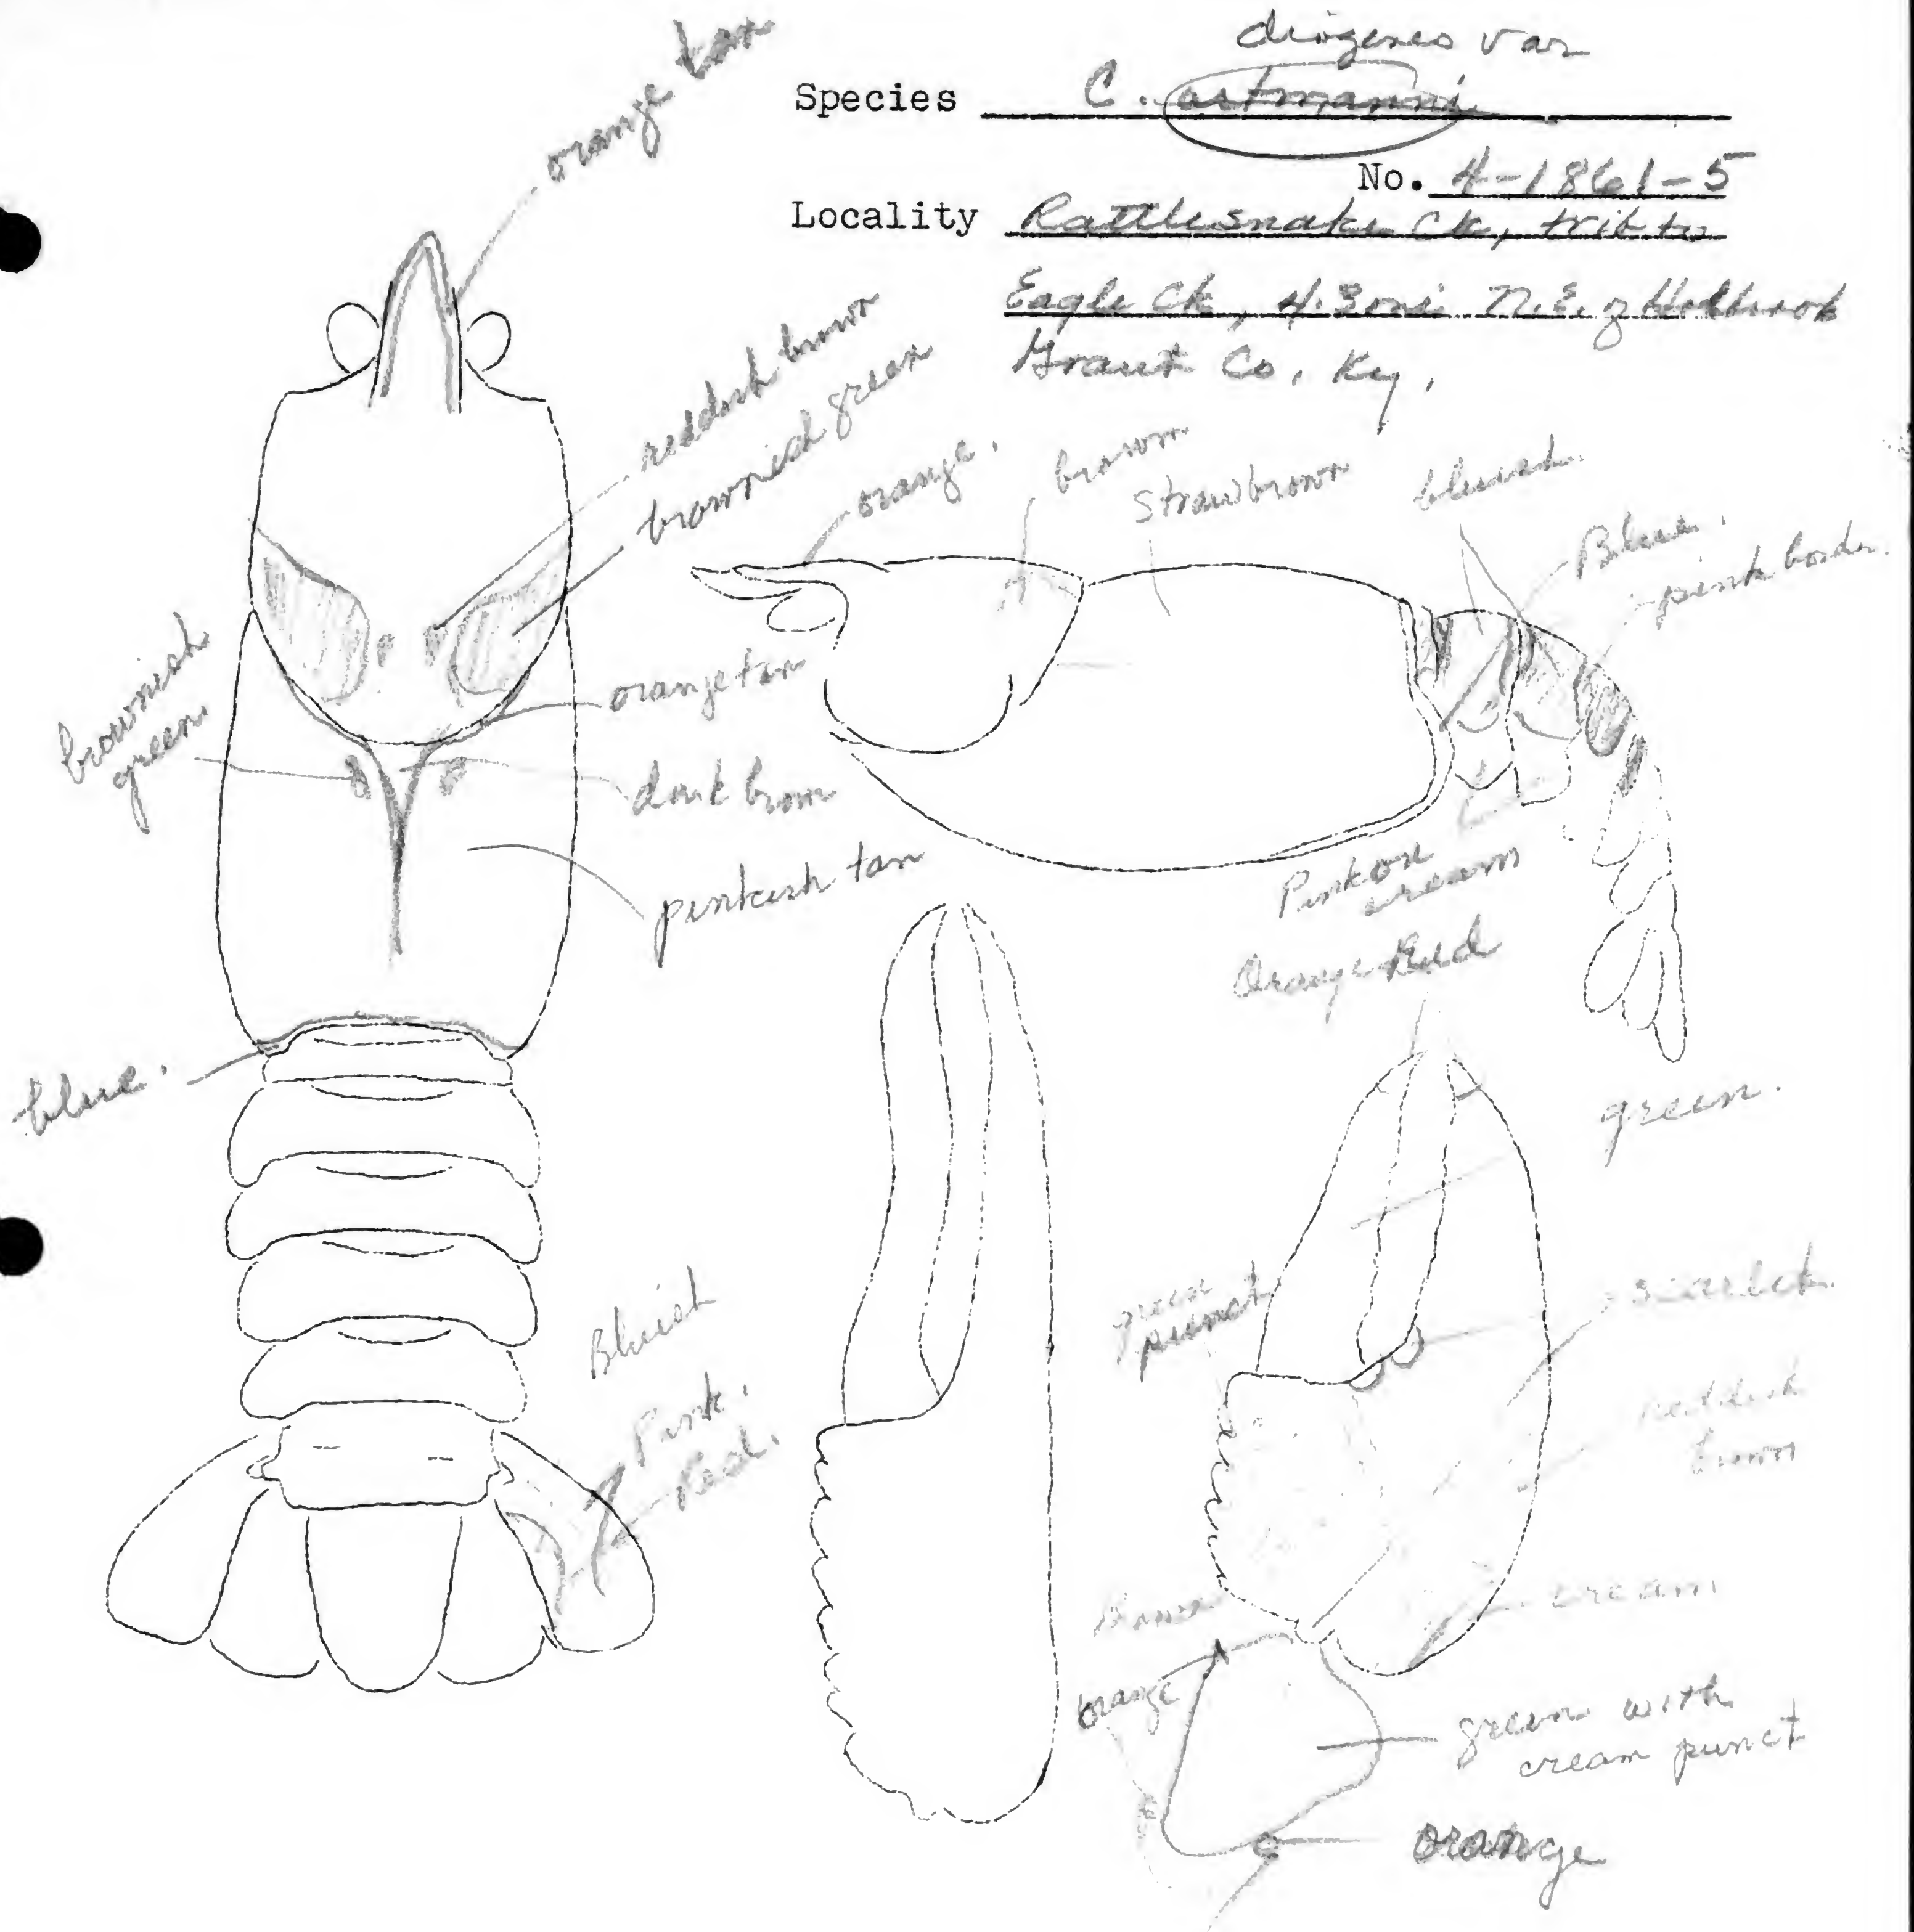 diogenes var
Species C. ortmanni
No. 4-1861-5
Locality Rattlesnake Ck, trib to
Eagle Ck, 4.3 mi N.E. of Holbrook
Grant Co, Ky.
orange tan
reddish brown
brownish green
orange.
brown
straw brown
bluish.
Blue.
pink border.
brownish
green.
orange tan
dark brown
pinkish tan
Pink on
cream
Orange Red
blue.
green.
green
punct
scarlet.
reddish
brown
Bluish
Pink.
Red.
cream
Brown
orange
green with
cream punct
orange